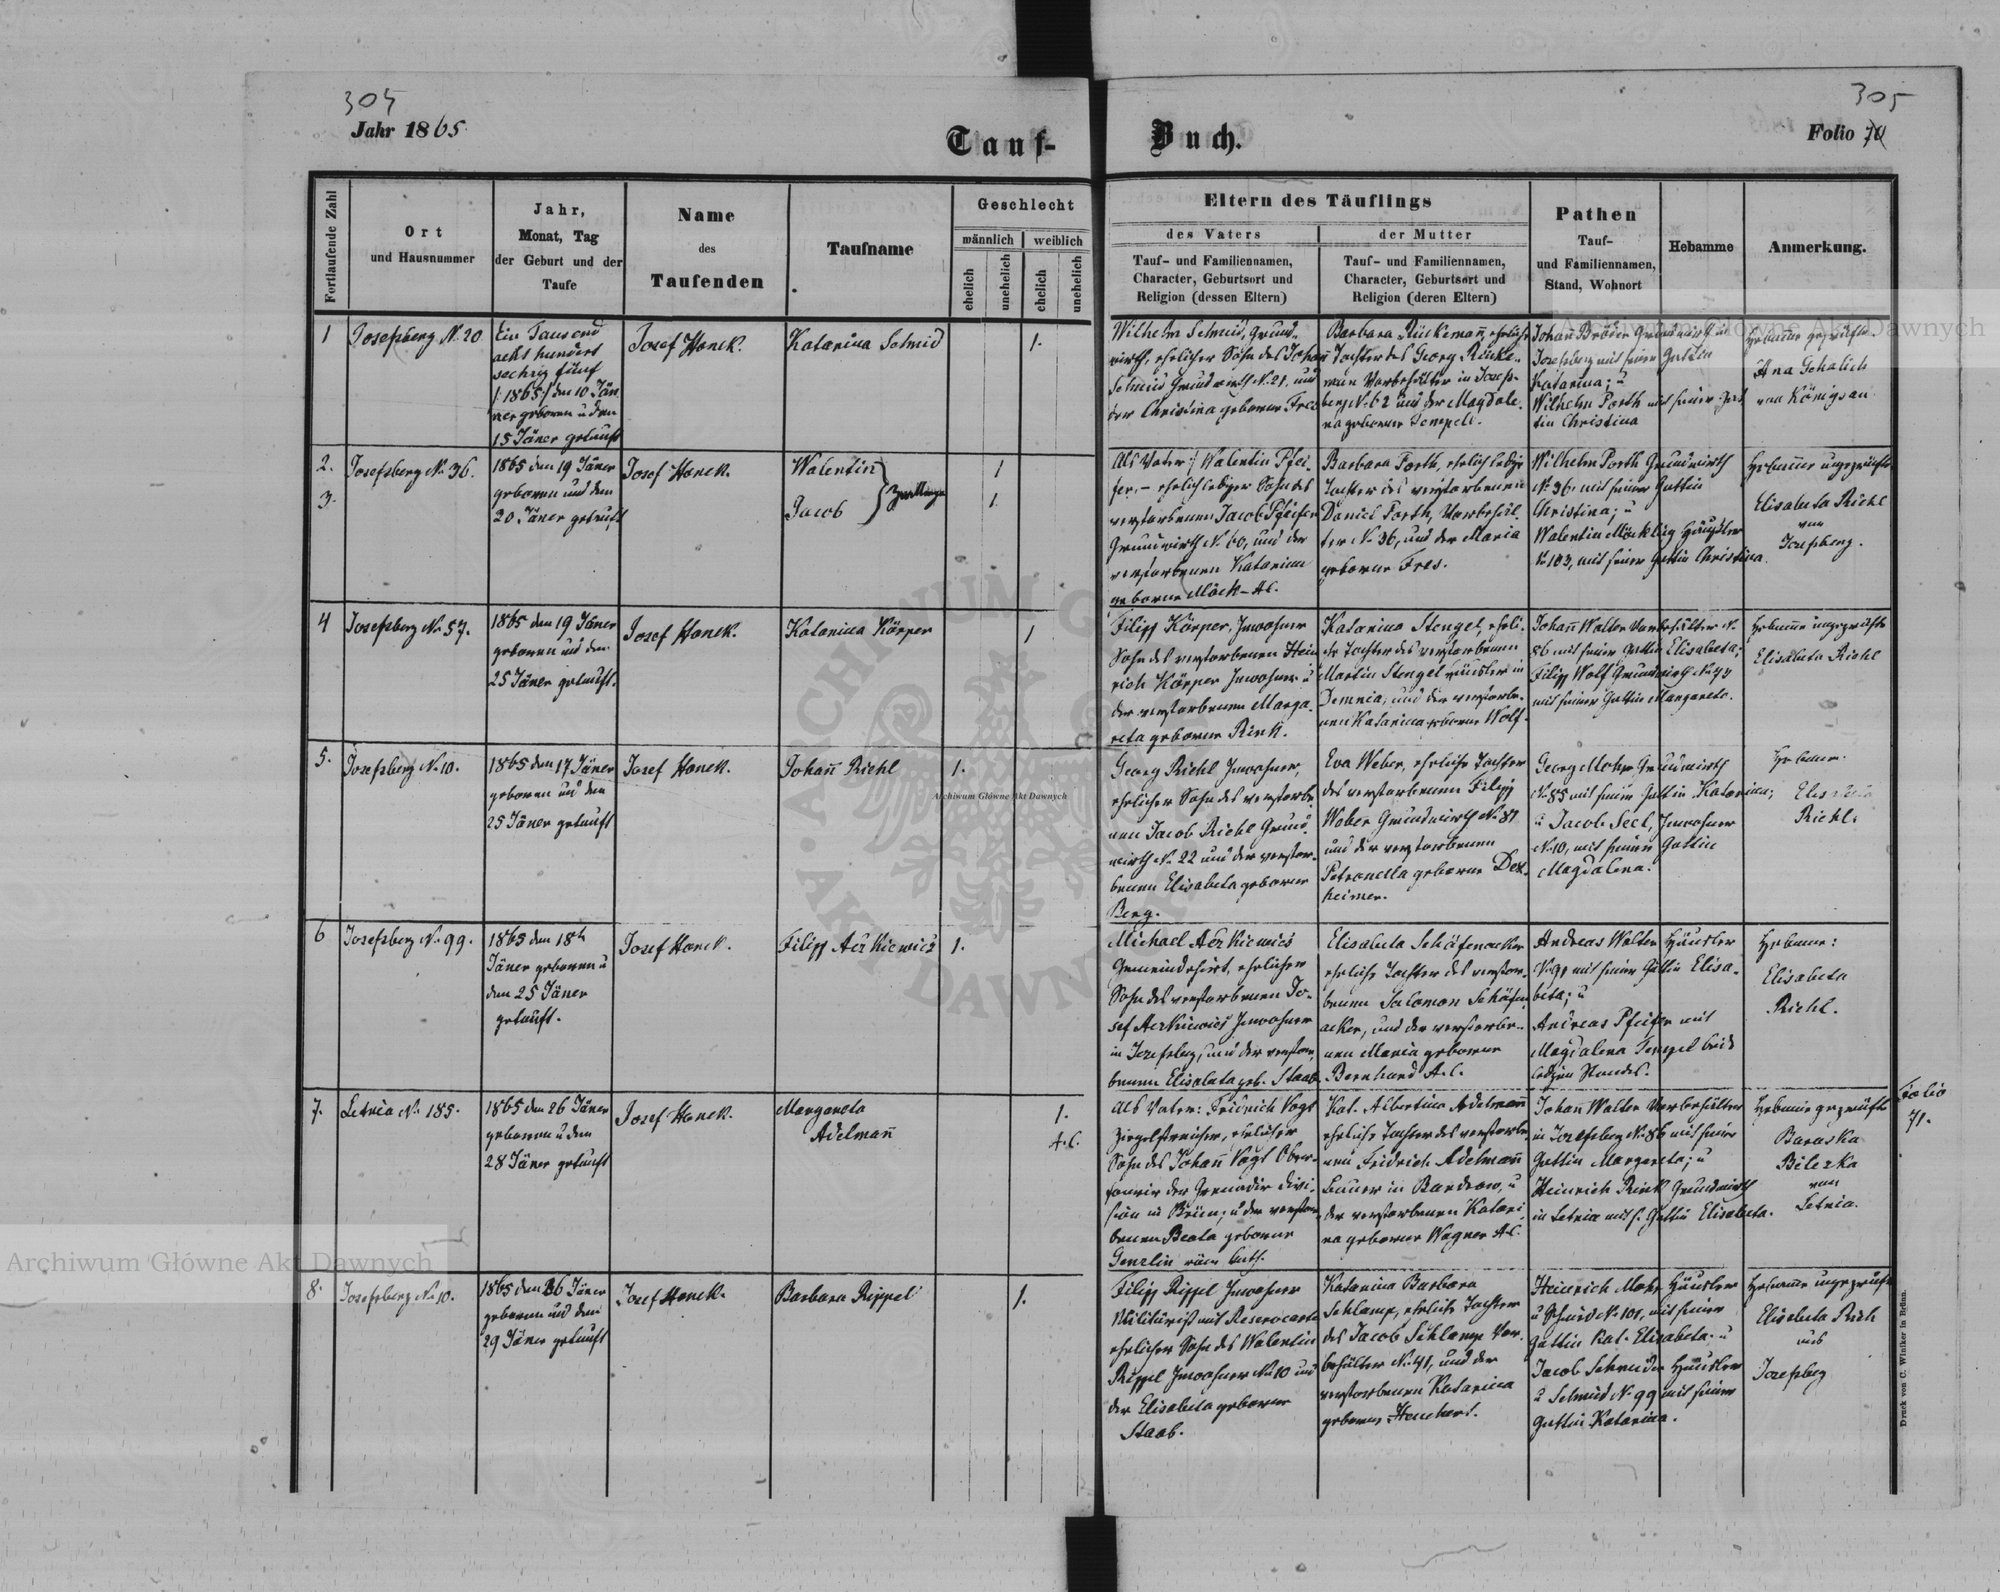 304
305
Jahr 1865.
Tauf-
Buch.
Folio 70
Fortlaufende Zahl
Ort
und Hausnummer
Jahr,
Monat, Tag
der Geburt und der
Taufe
Name
des
Taufenden
Taufname
Geschlecht
männlich
weiblich
ehelich
unehelich
ehelich
unehelich
Eltern des Täuflings
des Vaters
Tauf- und Familiennamen,
Character, Geburtsort und
Religion (dessen Eltern)
der Mutter
Tauf- und Familiennamen,
Character, Geburtsort und
Religion (deren Eltern)
Pathen
Tauf-
und Familiennamen,
Stand, Wohnort
Hebamme
Anmerkung.
1
Josefsberg N. 20
Ein Tausend
acht hundert
sechzig fünf
/: 1865 :/ den 10 Jän
ner geboren u den
15 Jäner getauft
Josef Honek.
Katarina Schmid
1.
Wilhelm Schmid, Grund-
wirth, ehelicher Sohn des Johan
Schmid Grundwirth N. 21. und
der Christina geborne Fres
Barbara Rückemañ, eheliche
Tochter des Georg Rücke-
man Vorbehälter in Josefs-
berg N. 62 und der Magdale-
na geborne Tempel.
Johañ Bröder Grundwirth in
Josefsberg mit seiner Gattin
Katarina; u
Wilhelm Porth mit seiner Gat-
tin Christina
Hebamme geprüfte
Ana Gehalich
von Königsau
2.
3.
Josefsberg N. 36.
1865 den 19 Jäner
geboren und den
20 Jäner getauft
Josef Honek.
Walentin
Jacob
Zwillinge
1
1.
Als Vater: Walentin Pfei-
fer, – ehelich lediger Sohn des
verstorbenen Jacob Pfeifer
Grundwirth N. 60, und der
verstorbenen Katarina
geborne Möck – A.C.
Barbara Porth, ehelich ledige
Tochter des verstorbenen
Daniel Porth, Vorbehäl-
ter N. 36, und der Maria
geborne Fres.
Wilhelm Porth Grundwirth
N. 36. mit seiner Gattin
Christina; u
Walentin Möckling Häusler
N. 103, mit seiner Gattin Christina.
Hebamme ungeprüfte
Elisabeta Riehl
von
Josefsberg.
4
Josefsberg N. 57.
1865 den 19 Jäner
geboren und den
25 Jäner getauft.
Josef Honek.
Katarina Körper
1
Filipp Körper, Inwohner
Sohn des verstorbenen Hein
rich Körper Inwohner u
der verstorbenen Marga-
reta geborne Rink.
Katarina Stengel, eheli-
che Tochter des verstorbenen
Martin Stengel Häusler in
Demnia, und der verstorbe-
nen Katarina geborne Wolf.
Johañ Walter Vorbehälter N.
86 mit seiner Gattin Elisabeta;
Filipp Wolf Grundwirth N. 44
mit seiner Gattin Margareta.
Hebamme ungeprüfte
Elisabeta Riehl
5.
Josefsberg N. 10.
1865 den 17 Jäner
geboren und den
25 Jäner getauft
Josef Honek.
Johañ Riehl
1.
Georg Riehl Inwohner,
ehelicher Sohn des verstorbe-
nen Jacob Riehl Grund-
wirth N. 22 und der verstor-
benen Elisabeta geborne
Berg.
Eva Weber, eheliche Tochter
des verstorbenen Filipp
Weber Grundwirth N. 87
und der verstorbenen
Petronella geborne Dex-
heimer.
Georg Mohr Grundwirth
N. 85 mit seiner Gattin Katarina;
u Jacob Seel, Inwohner
N. 10, mit seiner Gattin
Magdalena.
Hebamme.
Elisabeta
Riehl.
6
Josefsberg N. 99.
1865 den 18h
Jäner geboren u
den 25 Jäner
getauft.
Josef Honek.
Filipp Aczkiewicz
1.
Michael Aczkiewics
Gemeindehirt, ehelicher
Sohn des verstorbenen Jo-
sef Aczkiewics Inwohner
in Josefsberg, und der verstor-
benen Elisabeta geb. Staab.
Elisabeta Schäfenacker
eheliche Tochter des verstor-
benen Salomon Schäfen-
acker, und der verstorbe-
nen Maria geborne
Bernhard A.C.
Andreas Walter Häusler
N. 91 mit seiner Gattin Elisa-
beta; u
Andreas Pfeifer mit
Magdalena Tempel beide
ledigen Standes.
Hebame:
Elisabeta
Riehl.
7.
Letnia N. 185.
1865 den 26 Jäner
geboren u den
28 Jäner getauft
Josef Honek.
Margareta
Adelmañ
1.
A.C.
Als Vater: Fridrich Vogt
Ziegelstreicher, ehelicher
Sohn des Johañ Vogt Ober-
fourir der Grenadir Divi-
sion in Brün; u der verstor-
benen Beata geborne
Genzlin röm. kath.
Kat. Albertina Adelmañ
eheliche Tochter des verstorbe-
nen Fridrich Adelmañ
Bauer in Bandrow, u
der verstorbenen Katari-
na geborne Wagner A.C.
Johañ Walter Vorbehälter
in Josefsberg N. 86 mit seiner
Gattin Margareta; u
Heinrich Rink Grundwirth
in Letnia mit s. Gattin Elisabeta.
Hebamme geprüfte
Baraska
Bilezka
von
Letnia.
Folio
71.
8.
Josefsberg N. 10.
1865 den 26 Jäner
geboren und den
29 Jäner getauft
Josef Honek.
Barbara Rippel
1.
Filipp Rippel Inwohner
Militärist mit Reservecarte
ehelicher Sohn des Walentin
Rippel Inwohner N. 10 und
der Elisabeta geborne
Staab.
Katarina Barbara
Schlamp, eheliche Tochter
des Jacob Schlamp Vor-
behälter N. 41, und der
verstorbenen Katarina
geborne Heuchert.
Heinrich Mohr Häusler
u Schmid N. 101, mit seiner
Gattin Kat. Elisabeta. u
Jacob Schneider Häusler
u Schmid N. 99 mit seiner
Gattin Katarina.
Hebamme ungeprüft
Elisabeta Rieh
aus
Josefsberg
Druck von C. Winiker in Brünn.
Archiwum Główne Akt Dawnych
Archiwum Główne Akt Dawnych
Archiwum Główne Akt Dawnych